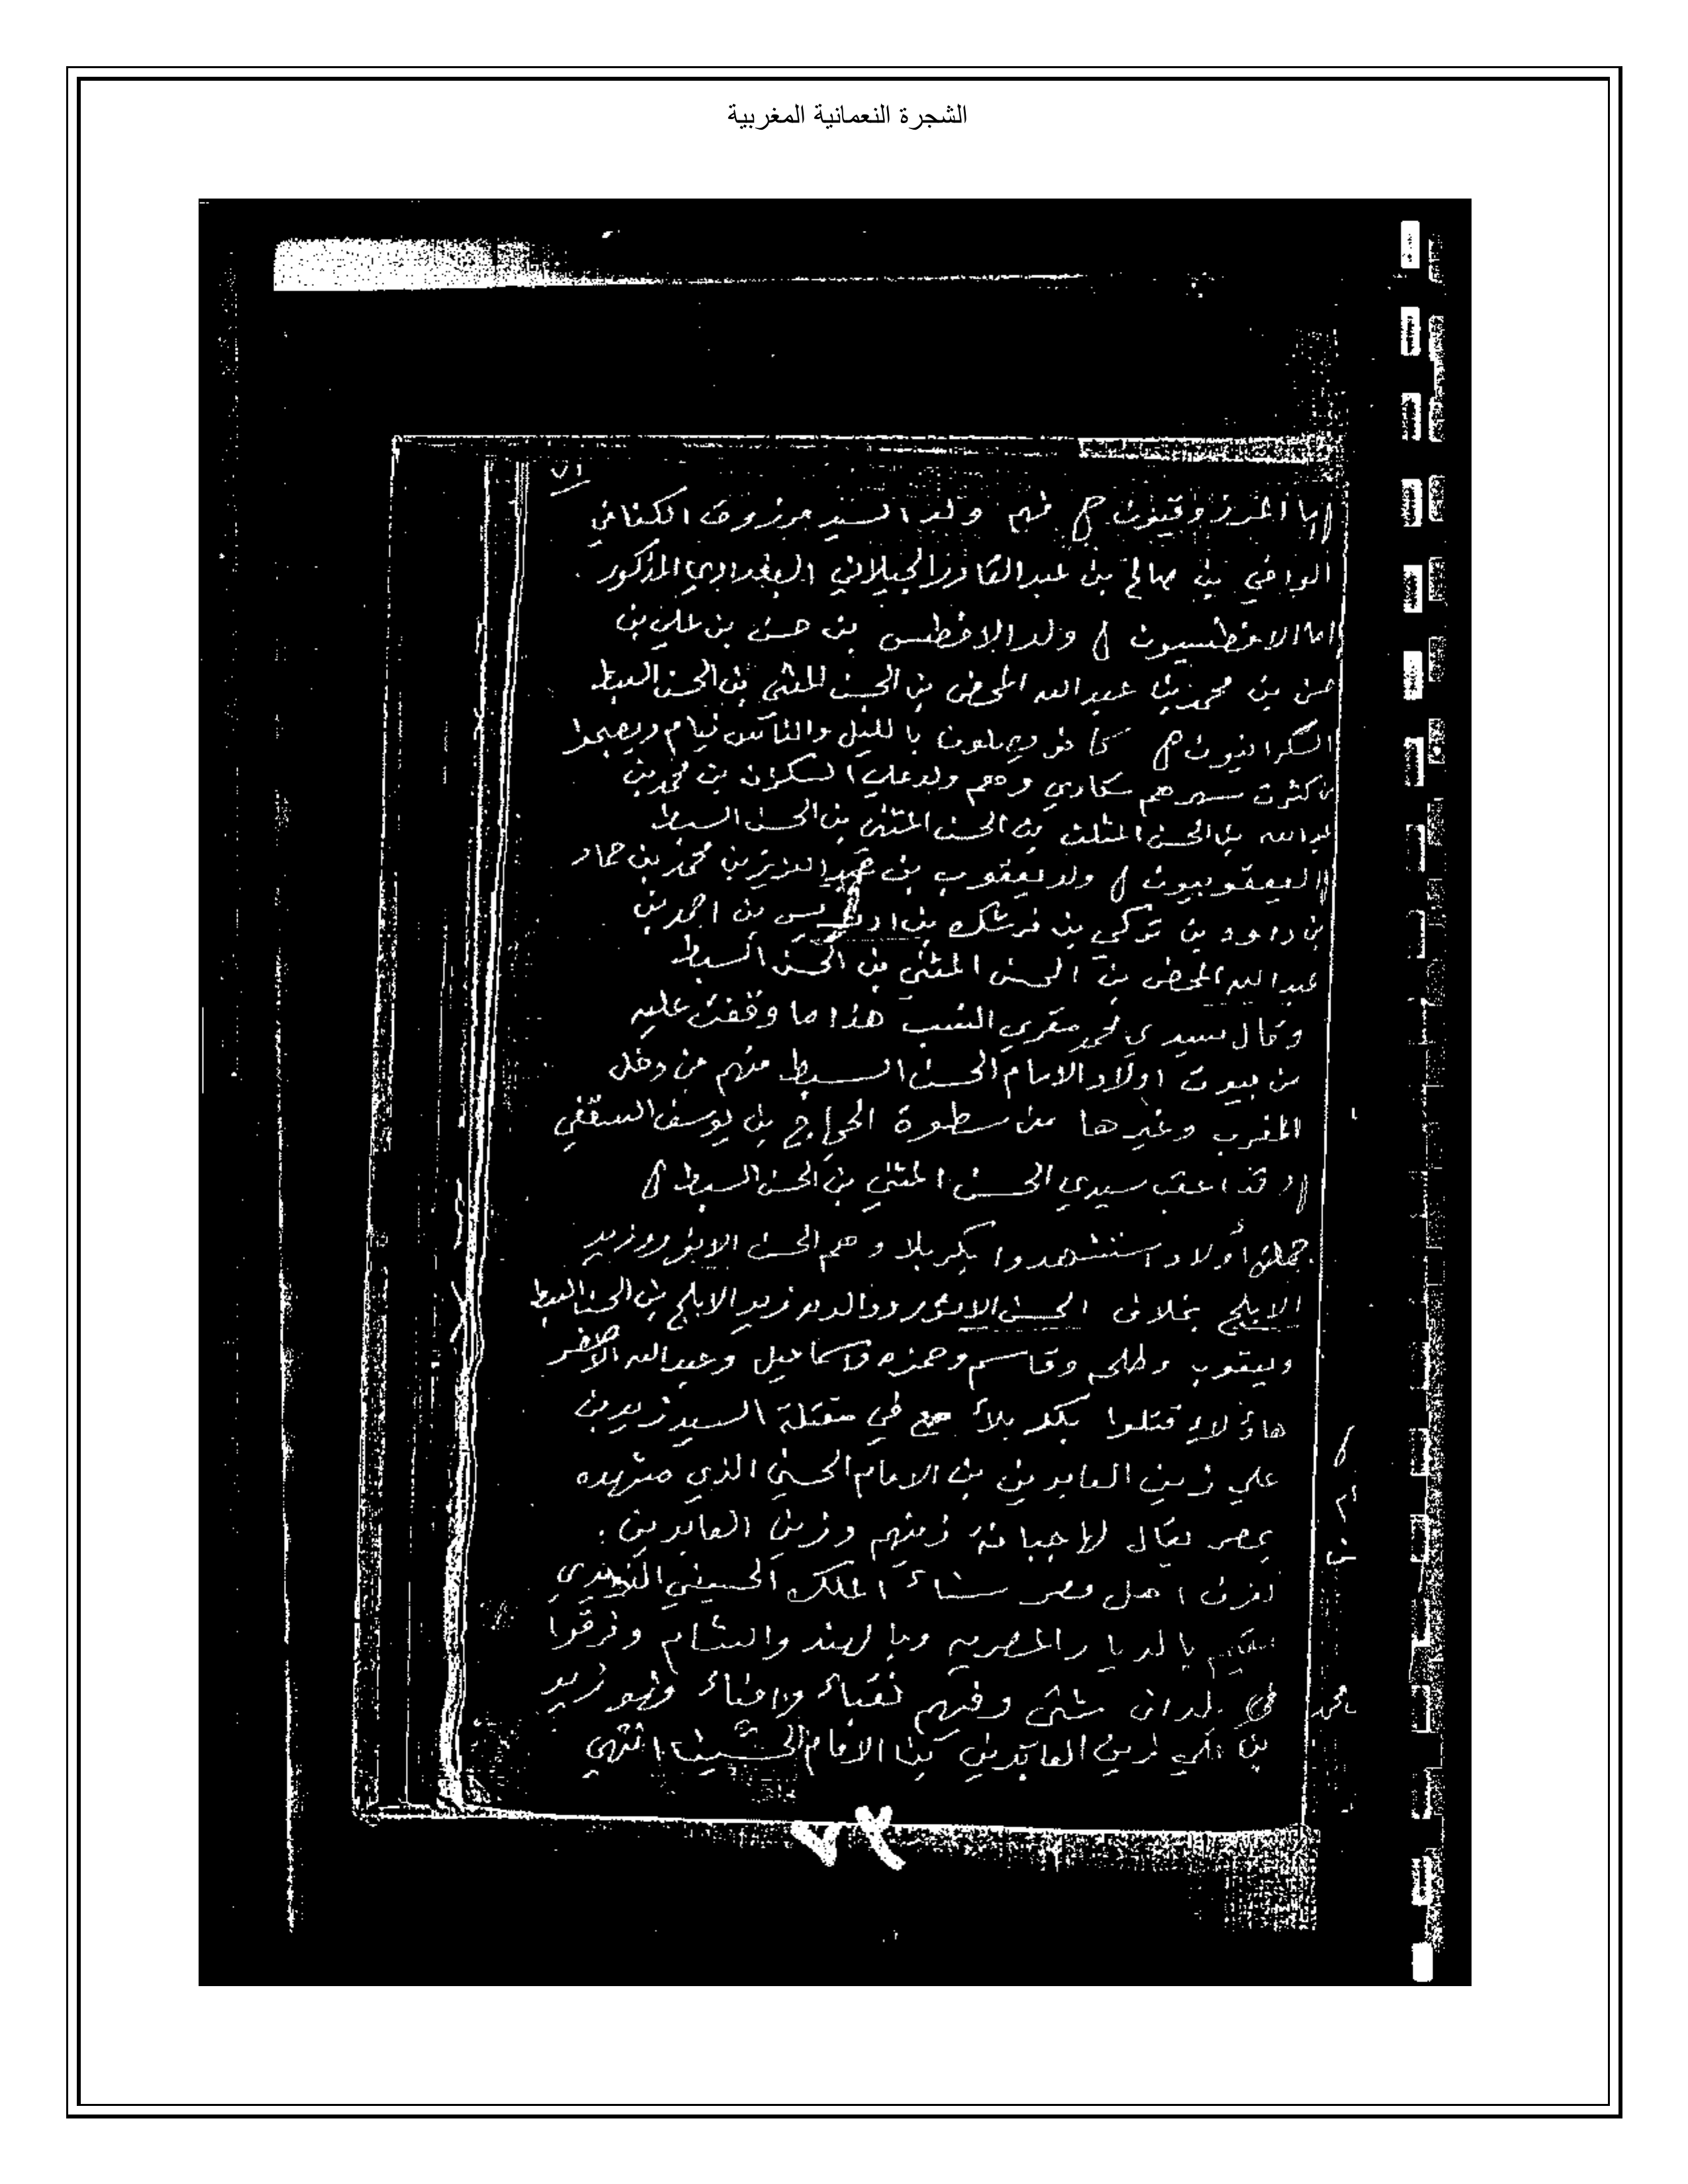 الشجرة النعمانية المغربية
٧١
اما المرزوقيون فهم ولد السيد مرزوق الكفافي
الوافي بن صالح بن عبد القادر الجيلاني البغدادي المذكور
اما الافطسيون ولد الافطس بن حسن بن علي بن
حسن بن محمد بن عبد الله المحض بن الحسن المثنى بن الحسن السبط
السكرانيون كانو يصلون بالليل والناس نيام ويصبحوا
من كثرت سهرهم سكارى وهم ولد علي السكران بن محمد بن
عبد الله بن الحسن المثلث بن الحسن المثنى بن الحسن السبط
اليعقوبيون ولد يعقوب بن عبد العزيز بن محمد بن حماد
بن داوود بن تركي بن فرشك بن ادريس بن احمد بن
عبد الله المحض بن الحسن المثنى بن الحسن السبط
وقال سيدي محمد مقري النسب هذا ما وقفت عليه
من بيوت اولاد الامام الحسن السبط منهم من دخل
المغرب وغيرها من سطوة الحجاج بن يوسف السقفي
وقد اعقب سيدي الحسن المثني بن الحسن السبط
جملة أولاد استشهدوا بكربلا وهم الحسن الانور وزيد
الابلج بخلاف الحسن الانور ووالده زيد الابلج بن الحسن السبط
ويعقوب وطلحه وقاسم وحمزه واسماعيل وعبد الله الاصغر
هاؤلاء قتلوا بكربلأ مع في مقتلة السيد زيد بن
علي زين العابدين بن الامام الحسين الذي مشهده
بمصر يقال لها جبانة زينهم وزين العابدين
تعرف اهل مصر سناء الملك الحسيني
مقيم بالديار المصريه وبالهند والشام وفرقوا
في بلدان شتى وفيهم نقباء وامناء وهو زيد
بن علي زين العابدين بن الامام الحسين انتهى
محمد
٧٢